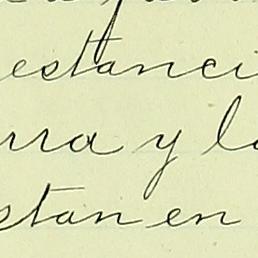 estanci
rra y la
stan en